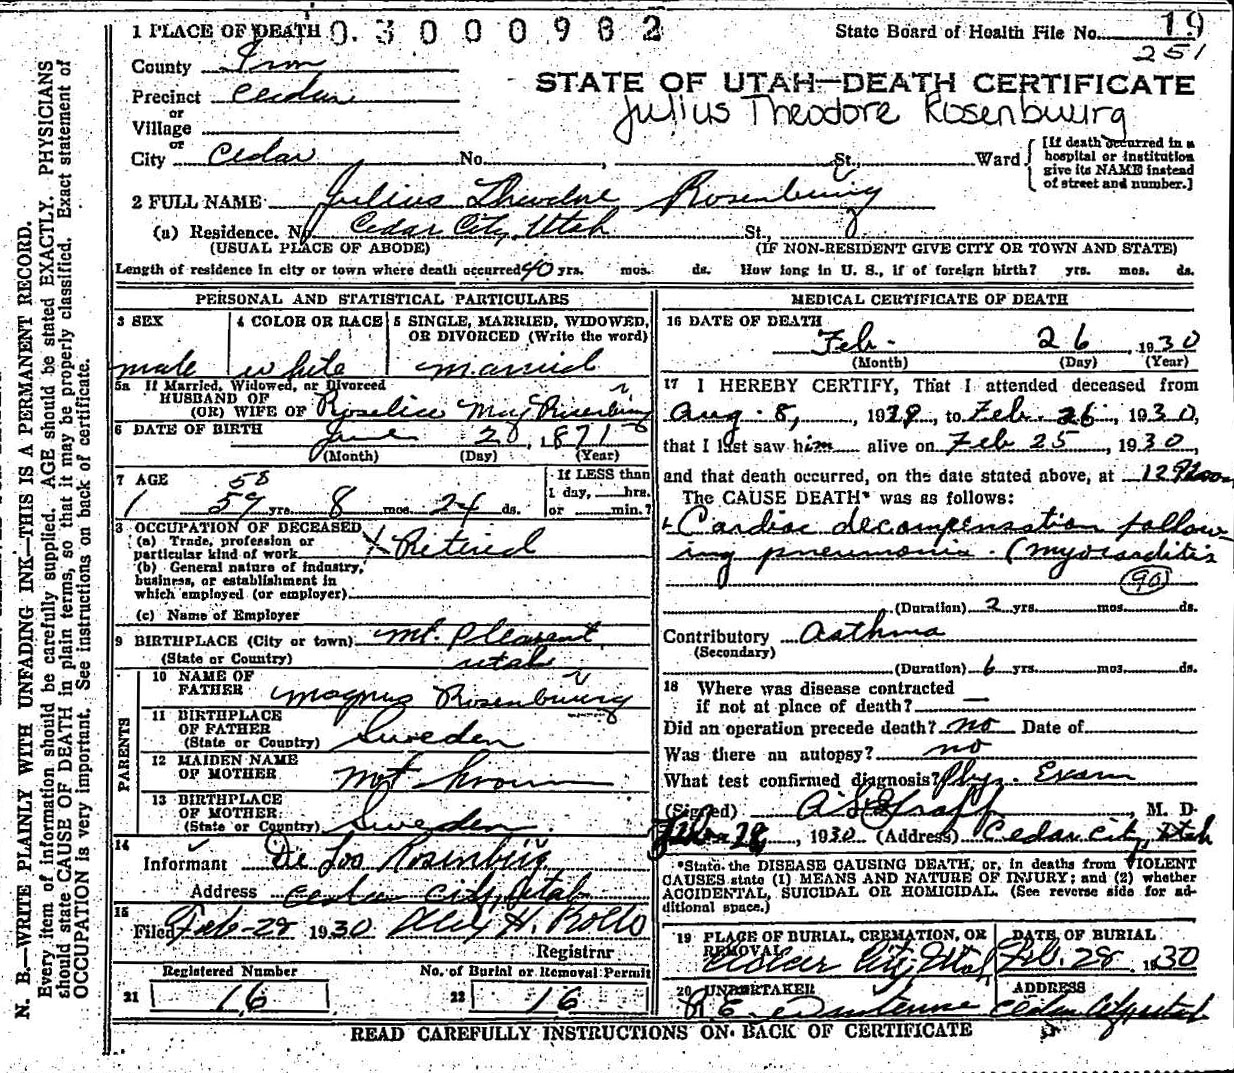 0.3000982
1 PLACE OF DEATH
State Board of Health File No. 19
251
County Iron
STATE OF UTAH—DEATH CERTIFICATE
Precinct Cedar
Julius Theodore Rosenbuurg
or
Village
or
City Cedar No. , St., Ward
[If death occurred in a hospital or institution give its NAME instead of street and number.]
2 FULL NAME Julius Theodore Rosenburg
(a) Residence. No. Cedar City, Utah St.,
(USUAL PLACE OF ABODE) (IF NON-RESIDENT GIVE CITY OR TOWN AND STATE)
Length of residence in city or town where death occurred 40 yrs. mos. ds. How long in U. S., if of foreign birth? yrs. mos. ds.
PERSONAL AND STATISTICAL PARTICULARS
3 SEX
male
4 COLOR OR RACE
white
5 SINGLE, MARRIED, WIDOWED,
OR DIVORCED (Write the word)
married
5a If Married, Widowed, or Divorced
HUSBAND OF
(OR) WIFE OF May
6 DATE OF BIRTH June 28, 1871
(Month) (Day) (Year)
7 AGE
58
59 yrs. 8 mos. 24 ds.
If LESS than
1 day, hrs.
or min.?
8 OCCUPATION OF DECEASED
(a) Trade, profession or
particular kind of work X Retired
(b) General nature of industry,
business, or establishment in
which employed (or employer)
(c) Name of Employer
9 BIRTHPLACE (City or town) Mt. Pleasant
(State or Country) Utah
PARENTS
10 NAME OF
FATHER Magnus Rosenburg
11 BIRTHPLACE
OF FATHER
(State or Country) Sweden
12 MAIDEN NAME
OF MOTHER Not known
13 BIRTHPLACE
OF MOTHER
(State or Country) Sweden
14
Informant De Loo Rosenburg
Address Cedar City, Utah
15
Filed Feb-28 1930 H.
Registrar
Registered Number
21 16
No. of Burial or Removal Permit
22 16
MEDICAL CERTIFICATE OF DEATH
16 DATE OF DEATH
Feb. 26, 1930
(Month) (Day) (Year)
17 I HEREBY CERTIFY, That I attended deceased from
Aug. 8, 1928, to Feb. 26, 1930,
that I last saw him alive on Feb 25, 1930,
and that death occurred, on the date stated above, at 12 Noon
The CAUSE DEATH* was as follows:
Cardiac decompensation follow-
ing pneumonia. (myocarditis
90
(Duration) 2 yrs. mos. ds.
Contributory Asthma
(Secondary)
(Duration) 6 yrs. mos. ds.
18 Where was disease contracted
if not at place of death? —
Did an operation precede death? no Date of
Was there an autopsy? no
What test confirmed diagnosis? Phys. Exam
(Signed) M. D.
Feb 28, 1930 (Address) Cedar City, Utah
*State the DISEASE CAUSING DEATH, or, in deaths from VIOLENT
CAUSES state (1) MEANS AND NATURE OF INJURY; and (2) whether
ACCIDENTAL, SUICIDAL OR HOMICIDAL. (See reverse side for ad-
ditional space.)
19 PLACE OF BURIAL, CREMATION, OR
REMOVAL
Cedar City, Utah
DATE OF BURIAL
Feb. 28 1930
20 UNDERTAKER
R. E.
ADDRESS
Cedar City, Utah
READ CAREFULLY INSTRUCTIONS ON BACK OF CERTIFICATE
N. B.—WRITE PLAINLY WITH UNFADING INK—THIS IS A PERMANENT RECORD.
Every item of information should be carefully supplied. AGE should be stated EXACTLY. PHYSICIANS
should state CAUSE OF DEATH in plain terms, so that it may be properly classified. Exact statement of
OCCUPATION is very important. See instructions on back of certificate.